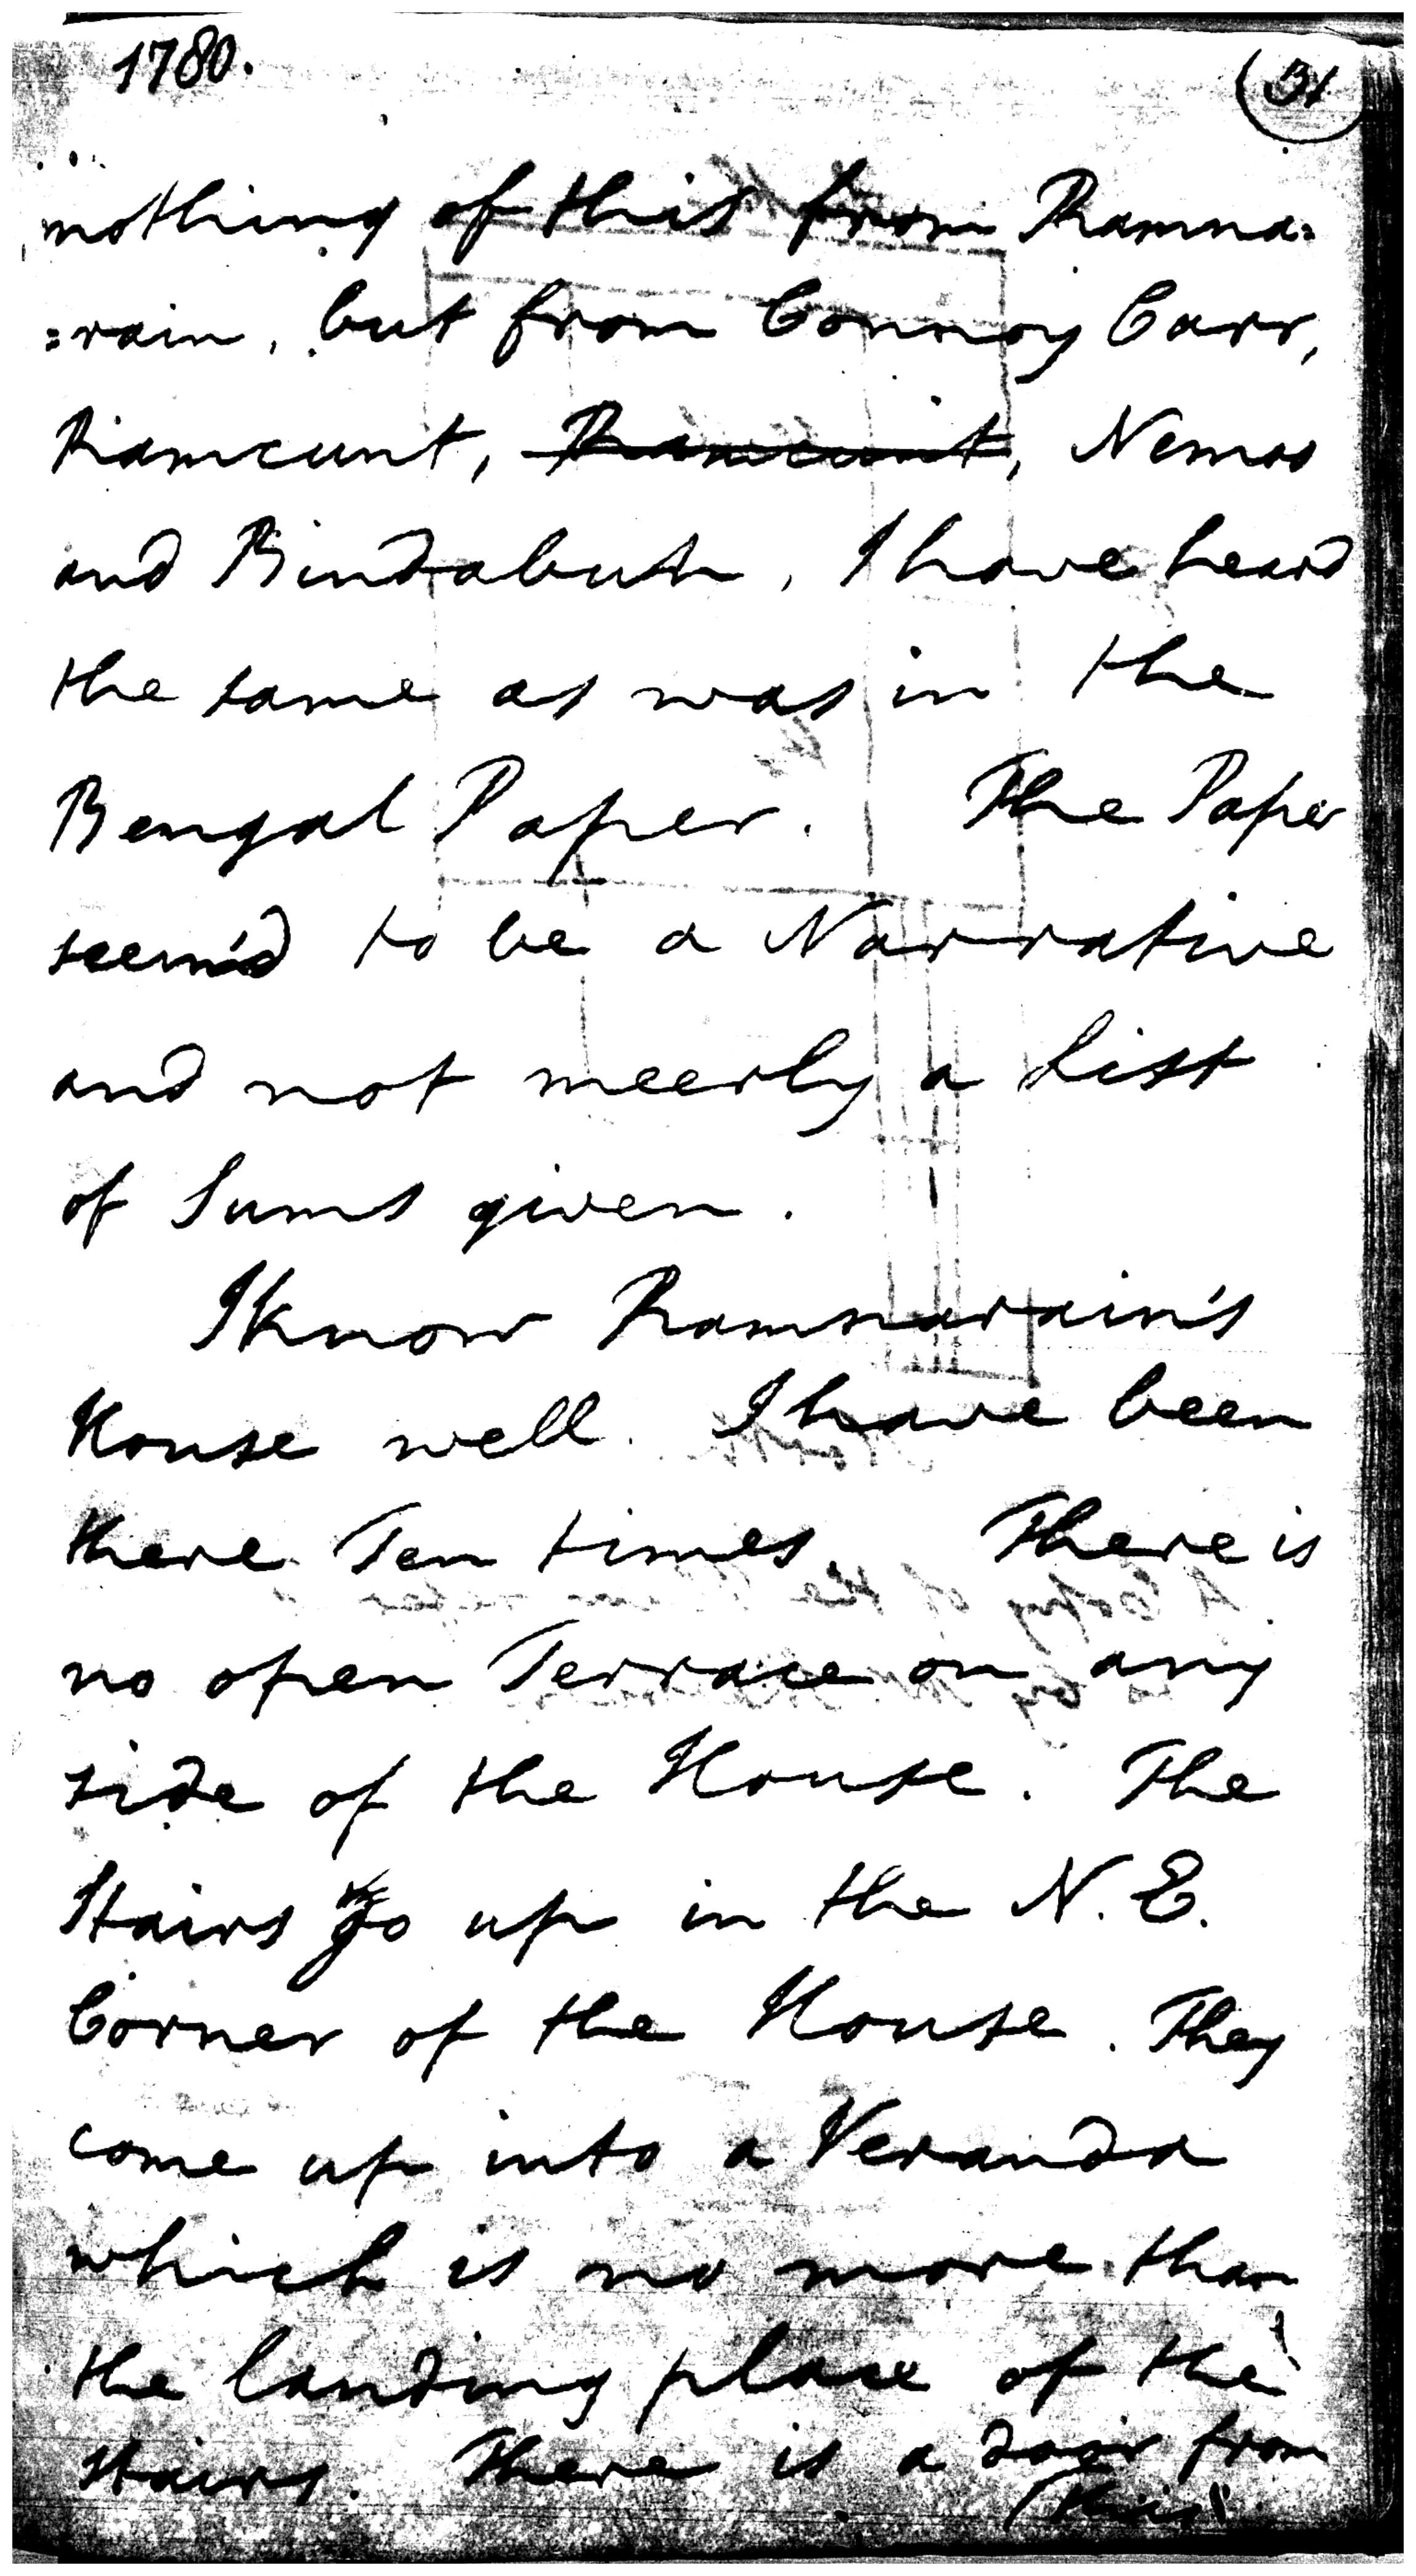 1780.
31
nothing of this from Ramna=
=rain, but from Connoy Carr,
Ramcunt, Ramcunt, Nemoo
and Bindabun, I have heard
the same as was in the
Bengal Paper. The Paper
seem'd to be a Narrative
and not meerly a List
of Sums given.
I know Ramnarain's
House well. I have been
there Ten times. There is
no open Terrace on any
side of the House. The
Stairs go up in the N. E.
Corner of the House. They
come up into a Veranda
which is no more than
the landing place of the
Stairs. There is a door from
this